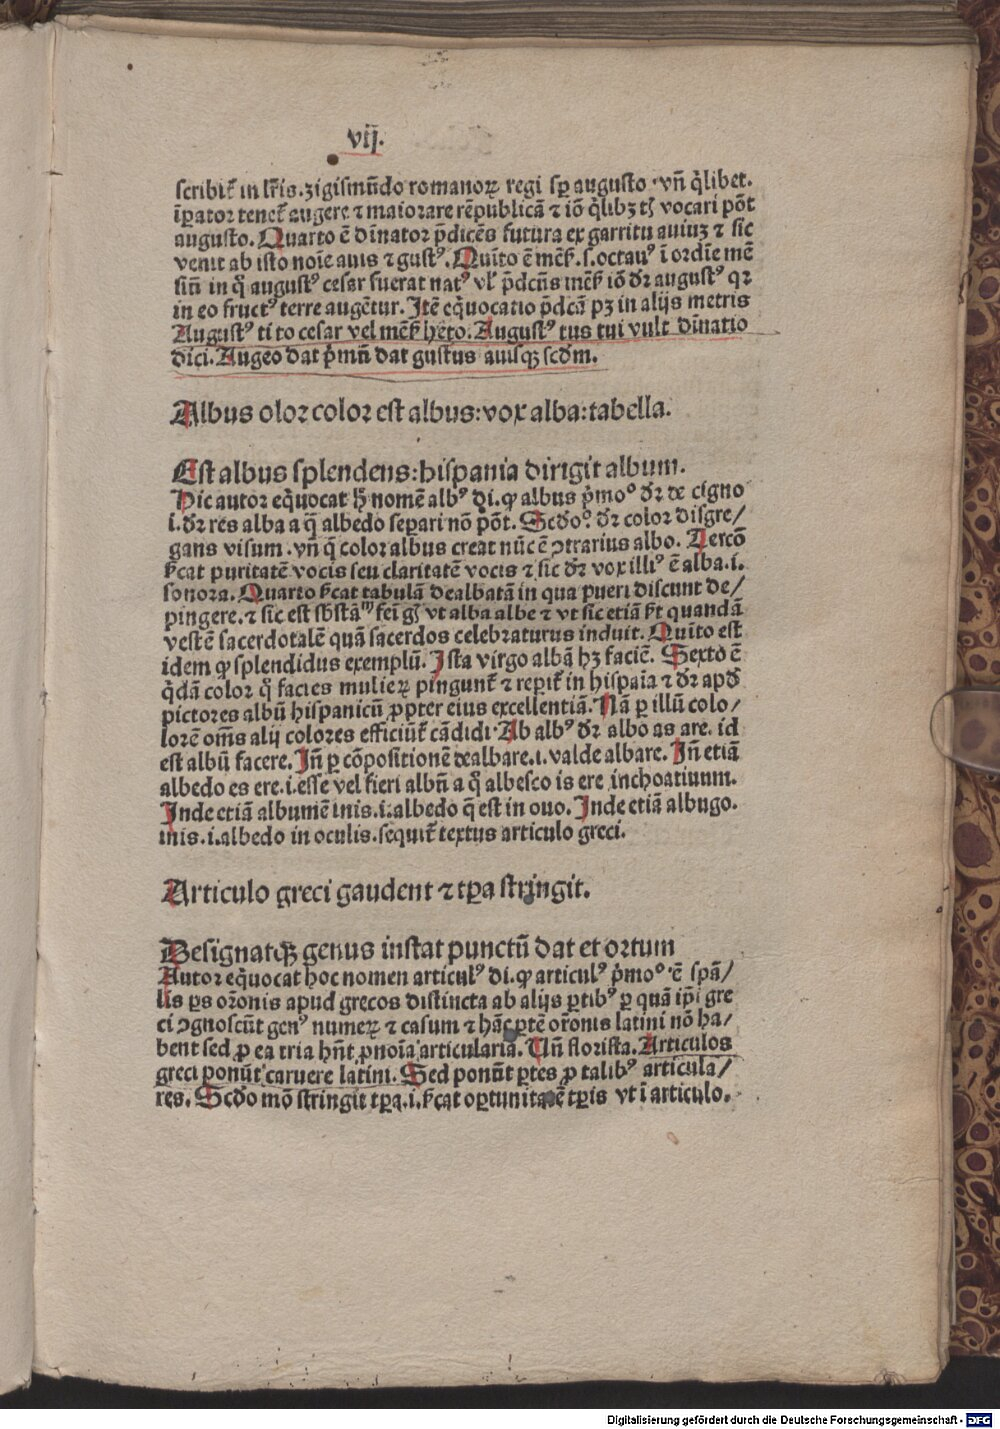 vij.
scribit᷑ in lr̃is. zigismũdo romanoꝝ regi sꝑ augusto vñ q̃libet.
ĩꝑator tenet᷑ augere ⁊ maiorare rẽpublicã ⁊ iõ q̃libꝫ vocari põt
augusto. Quarto ẽ dĩnator p̃dicẽs futura ex garritu auiuꝫ ⁊ sic
venit ab isto noĩe auis ⁊ gustꝰ. Quĩto ẽ mẽs. s. octauꝰ ĩ ordĩe mẽ
siũ in q̃ augustꝰ cesar fuerat natꝰ vl̕ p̃dcñs mẽs iõ dr̃ augustꝰ qꝛ
in eo fructꝰ terre augẽtur. Itẽ eq̃uocatio p̃dcã pꝫ in alijs metris
Augustꝰ ti to cesar vel mẽs heto. Augustꝰ tus tui vult dĩnatio
dici. Augeo dat p̃mũ dat gustus auisqꝫ scd̃m.
Albus olor color est albus: vox alba: tabella.
Est albus splendens: hispania dirigit album.
Hic autor eq̃uocat h̃ nomẽ albꝰ di. ꝙ albus p̃moꝰ dr̃ de cigno
i. dr̃ res alba a q̃ albedo seꝑari nõ põt. Scd̃oꝰ dr̃ color disgre/
gans visum. vñ q̃ color albus creat nũc ẽ ꝯtrarius albo. Tercõ
s̃cat puritatẽ vocis seu claritatẽ vocis ⁊ sic dr̃ vox illiꝰ ẽ alba. i.
sonora. Quarto s̃cat tabulã dealbatã in qua pueri discunt de/
pingere. ⁊ sic est sb̃stãm fei gñ vt alba albe ⁊ vt sic etiã s̃t quandã
vestẽ sacerdotalẽ quã sacerdos celebraturus induit. Quĩto est
idem ꝙ splendidus exemplũ. Ista virgo albã hꝫ faciẽ. Sexto ẽ
q̃dã color q̃ facies mulieꝝ pingunt᷑ ⁊ reꝑit᷑ in hispaĩa ⁊ dr̃ apd̕
pictores albũ hispanicũ ꝓpter eius excellentiã. Nã ꝑ illũ colo/
lorẽ om̃s alij colores efficiũt᷑ cãdidi. Ab albꝰ dr̃ albo as are. id
est albũ facere. Iñ ꝑ cõpositionẽ dealbare. i. valde albare. Iñ etiã
albedo es ere. i. esse vel fieri albũ a q̃ albesco is ere inchoatiuum.
Inde etiã albumẽ inis. i. albedo q̃ est in ouo. Inde etiã albugo.
inis. i. albedo in oculis. sequit᷑ textus articulo greci.
Articulo greci gaudent ⁊ tꝑa stringit.
Designatqꝫ genus instat punctũ dat et ortum
Autor eq̃uocat hoc nomen articulꝰ di. ꝙ articulꝰ p̃moꝰ ẽ spã/
lis ꝑs or̃onis apud grecos distincta ab alijs ꝑtibꝰ ꝑ quã ip̃i gre
ci ꝯgnoscũt genꝰ numeꝝ ⁊ casum ⁊ hãc ꝑtẽ or̃onis latini nõ ha/
bent sed ꝓ ea tria hñt ꝓnoĩa articularia. Vñ florista. Articulos
greci ponũt caruere latini. Sed ponũt ꝑtes ꝓ talibꝰ articula/
res. Scd̃o mõ stringit tꝑa. i. s̃cat oꝑtunitatẽ tꝑis vt ĩ articulo.
Digitalisierung gefördert durch die Deutsche Forschungsgemeinschaft - DFG